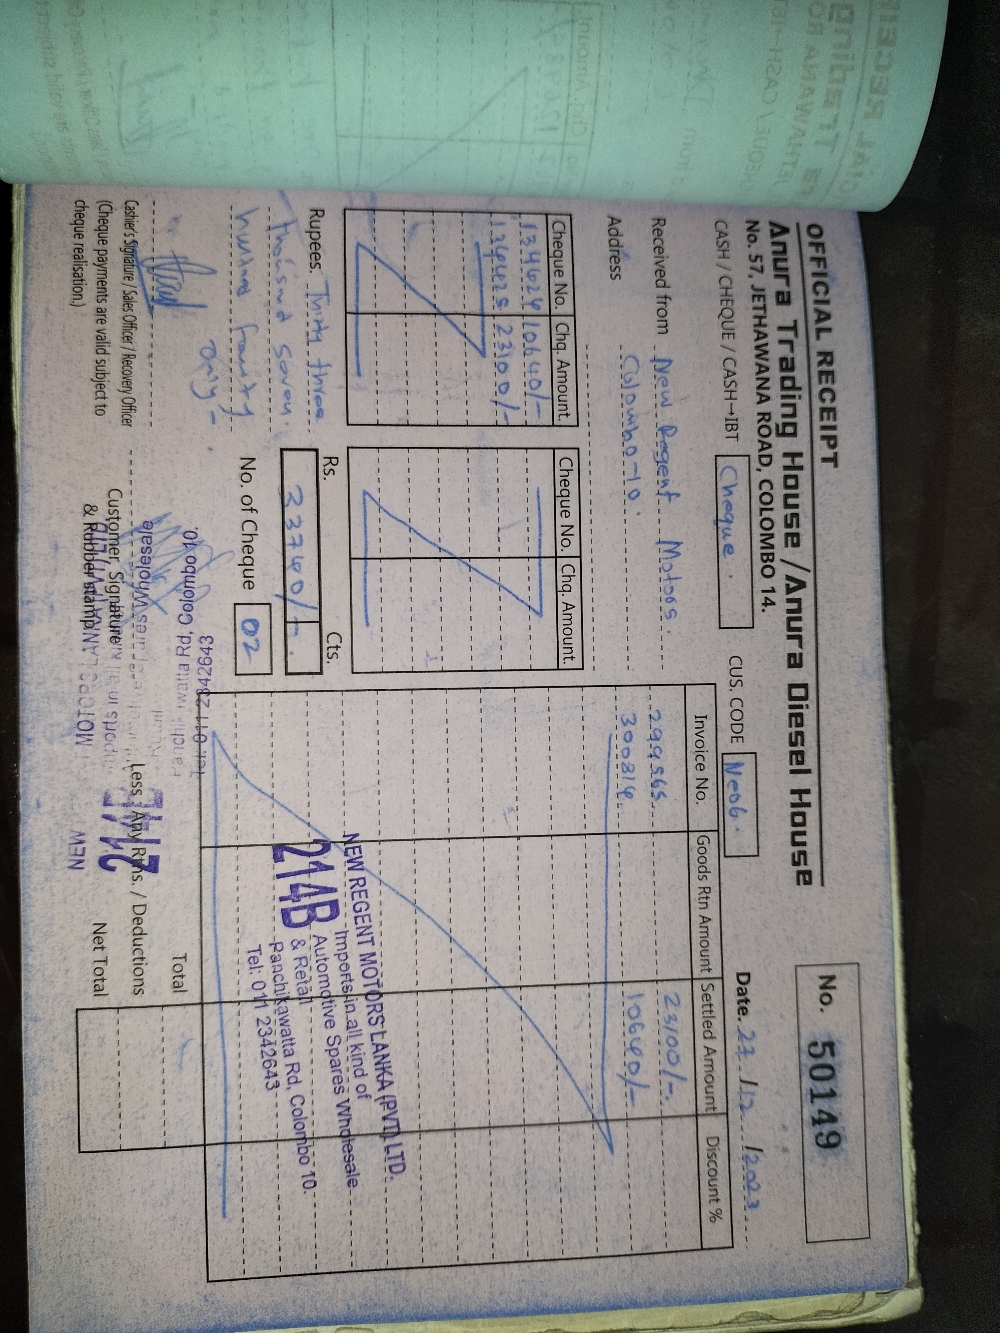 OFFICIAL RECEIPT
No. 50149
Anura Trading House / Anura Diesel House
No. 57, JETHAWANA ROAD, COLOMBO 14.
CASH / CHEQUE / CASH→IBT Cheque.
CUS. CODE Ne06.
Date. 27 / 12 / 2023
Received from New Regent Motors.
Address Colombo-10.
Cheque No. Chq. Amount.
134624 10640/-
134625 23100/-
Cheque No. Chq. Amount.
Rupees. Thirty three
thousand seven
hundred fourty
only-
Rs. Cts.
33740/-
No. of Cheque 02
Cashier's Signature / Sales Officer / Recovery Officer
(Cheque payments are valid subject to
cheque realisation.)
Customer Signature
& Rubber stamp
Invoice No. Goods Rtn Amount Settled Amount Discount %
299565 23100/-
300314 10640/-
NEW REGENT MOTORS LANKA (PVT) LTD.
Imports in all kind of
Automotive Spares Wholesale
214B & Retail
Panchikawatta Rd, Colombo 10.
Tel: 011 2342643
Total
Less : Any Rtns. / Deductions
Net Total